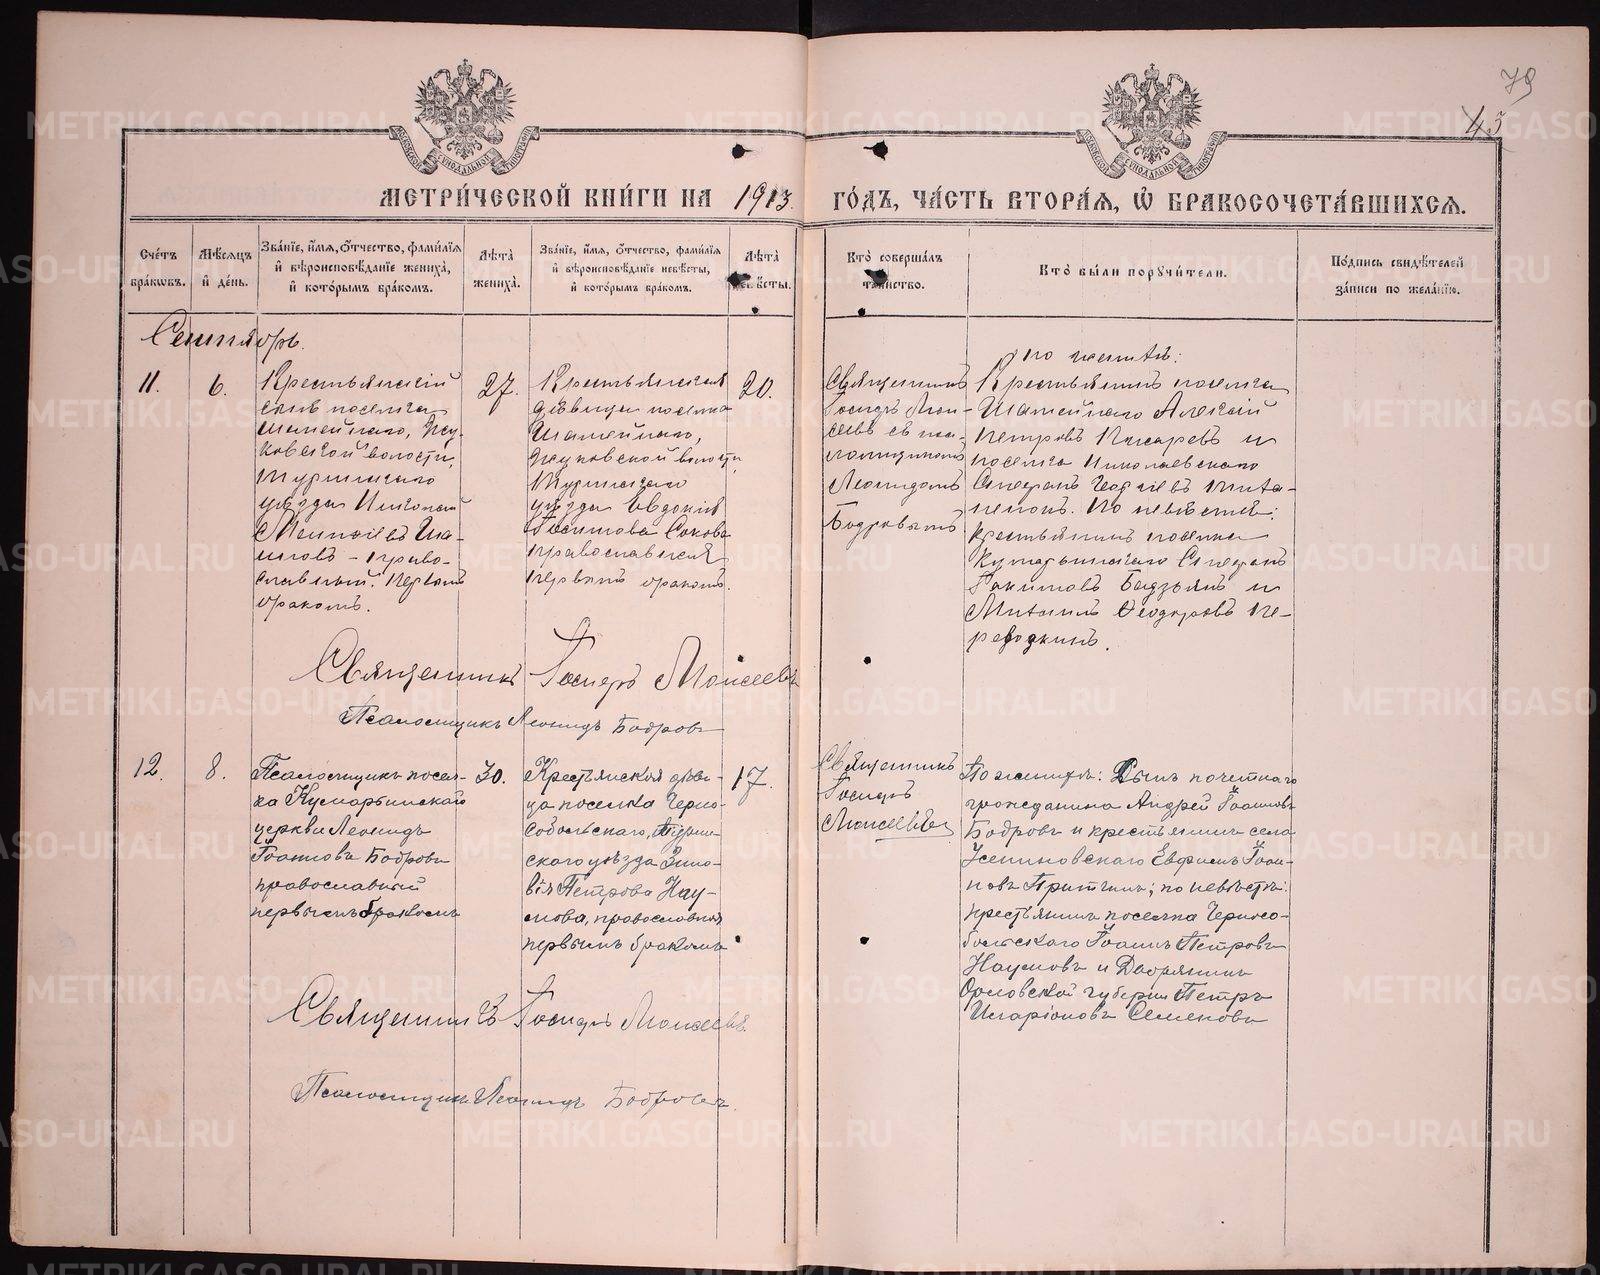 79
45
МЕТРИ́ЧЕСКОЙ КНИ́ГИ НА 1913. ГО́ДЪ, ЧА́СТЬ ВТОРА́Я, Ѡ БРАКОСОЧЕТА́ВШИХСЯ.
Сче́тъ бра́кѡвъ.
Мѣ́сяцъ и́ де́нь.
Зва́нїе, и́мя, ѻ́тчество, фами́лїя и́ вѣроисповѣ́данїе жениха̀, и́ кото́рымъ бра́комъ.
Лѣ́та жениха̀.
Зва́нїе, и́мя, ѻ́тчество, фами́лїя и́ вѣроисповѣ́данїе невѣ́сты, и́ кото́рымъ бра́комъ.
Лѣ́та невѣ́сты.
Кто̀ соверша́лъ та́инство.
Кто̀ бы́ли порꙋчи́тели.
По́дпись свидѣ́телей за́писи по жела́нїю.
Сентябрь.
11.
6.
Крестьянскій
сынъ поселка
Шатейнаго, Жу-
ковской волости,
Туринскаго
уѣзда Николай
православный. Первымъ
бракомъ.
27.
Крестьянская
дѣвица поселка
Шатейнаго,
Жуковской волости,
Туринскаго
уѣзда Евдокія
православная
первымъ бракомъ.
20.
Священникъ
Іосифъ Мои-
сеевъ съ пса-
ломщикомъ
Леонидомъ
Бодровымъ
По женихѣ:
Крестьянинъ поселка
Шатейнаго Алексій
Петровъ Писаревъ и
поселка Николаевскаго
По невѣстѣ:
крестьянинъ поселка
Кумарьинскаго Стефанъ
Ѳеодоровъ Пе-
реводкинъ.
Священникъ Іосифъ Моисеевъ
Псаломщикъ Леонидъ Бодровъ
12.
8.
Псаломщикъ посел-
ка Кумарьинскаго
церкви Леонидъ
Іоанновъ Бодровъ
православный
первымъ бракомъ
30.
Крестьянская дѣви-
ца поселка Черно-
собольскаго, Турин-
скаго уѣзда Зино-
вія Петрова Нау-
мова, православная
первымъ бракомъ
17.
Священникъ
Іосифъ
Моисеевъ
По женихѣ: Сынъ почетнаго
гражданина Андрей Іоанновъ
Бодровъ и крестьянинъ села
Усениновскаго Евфимъ Іоан-
новъ Притчинъ; по невѣстѣ:
крестьянинъ поселка Черносо-
больскаго Іоаннъ Петровъ
Наумовъ и Дворянинъ
Орловской губерніи Петръ
Иларіоновъ Семековъ
Священникъ Іосифъ Моисеевъ.
Псаломщикъ Леонидъ Бодровъ.
METRIKI.GASO-URAL.RU